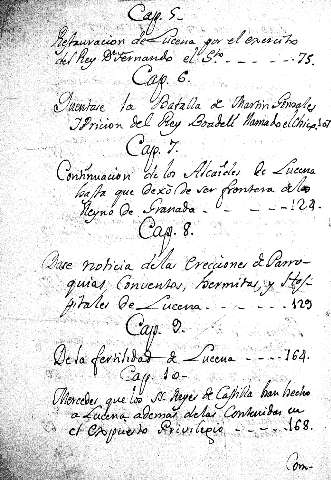 Cap. 5.
Restauracion de Lucena por el exercito
del Rey Dn Fernando el Sto - - - - - 75.
Cap. 6.
Cuentase la Batalla de Martin Gonzales
y Pricion del Rey Boadell llamado el chico 107
Cap. 7.
Continuacion de los Alcaides de Lucena
hasta que dexò de ser frontera de los
Reyno de Granada - - - - - 124.
Cap. 8.
Dase noticia de las Erecciones de Parro-
quias, Conventos, hermitas, y Hos-
pitales de Lucena - - - - 129
Cap. 9.
De la fertilidad de Lucena - - - - 164.
Cap. 10-
Mercedes que los SS. Reyes de Castilla han hecho
a Lucena ademas de las Contenidas en
el expuesto Privilegio - - - 168.
Com-